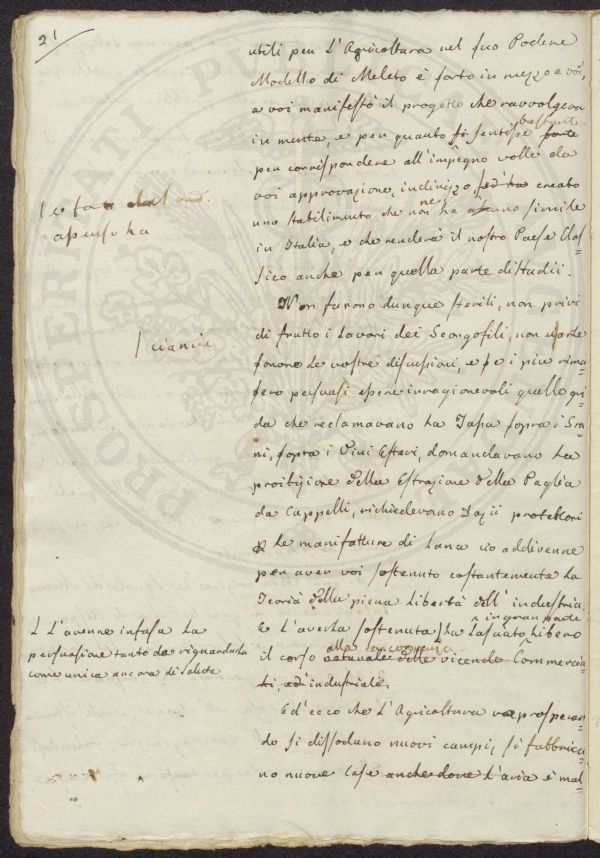 21
utili per l'Agricoltura nel suo Podere
Modello di Meleto è sorto in mezzo a voi,
a voi manifestò il progetto che ravvolgeva
in mente, e per quanto si sentisse forte
bastante
per corrispondere all'impegno volle da
voi approvazione, indirizzo ed ha creato
uno stabilimento che non ha simile
in Italia, e che renderà il nostro Paese Clas=
sico anche per quella parte di studii.
Non furono dunque sterili, non privi
di frutto i lavori dei Georgofili, non
ciancie
furono le vostre discussioni, e se i più rima=
sero persuasi essere irragionevoli quelle gri=
da che reclamavano la Tassa sopra i Gra=
ni, sopra i Vini Esteri, domandavano la
proibizione della Estrazione della Paglia
da Cappelli, richiedevano Dazii protettori
le manifatture di Lana ciò addivenne
per aver voi sostenuto costantemente la
Teoria della piena libertà dell'industria.
E l'averla sostenuta ha in gran parte lasciato libero
L'averne infusa la
persuasione tanto da riguardarla
come unica ancora di salute
il corso alla concorrenza naturale delle vicende Commercia=
li, ed industriale.
Ed ecco che l'Agricoltura prosperan=
do si dissodano nuovi campi, si fabbrica=
no nuove Case anche dove l'aria è mal=
PROSPERITATI PUBLICAE